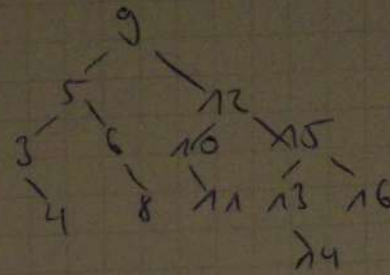 9
5 12
3 6 10 15
4 8 11 13 16
14